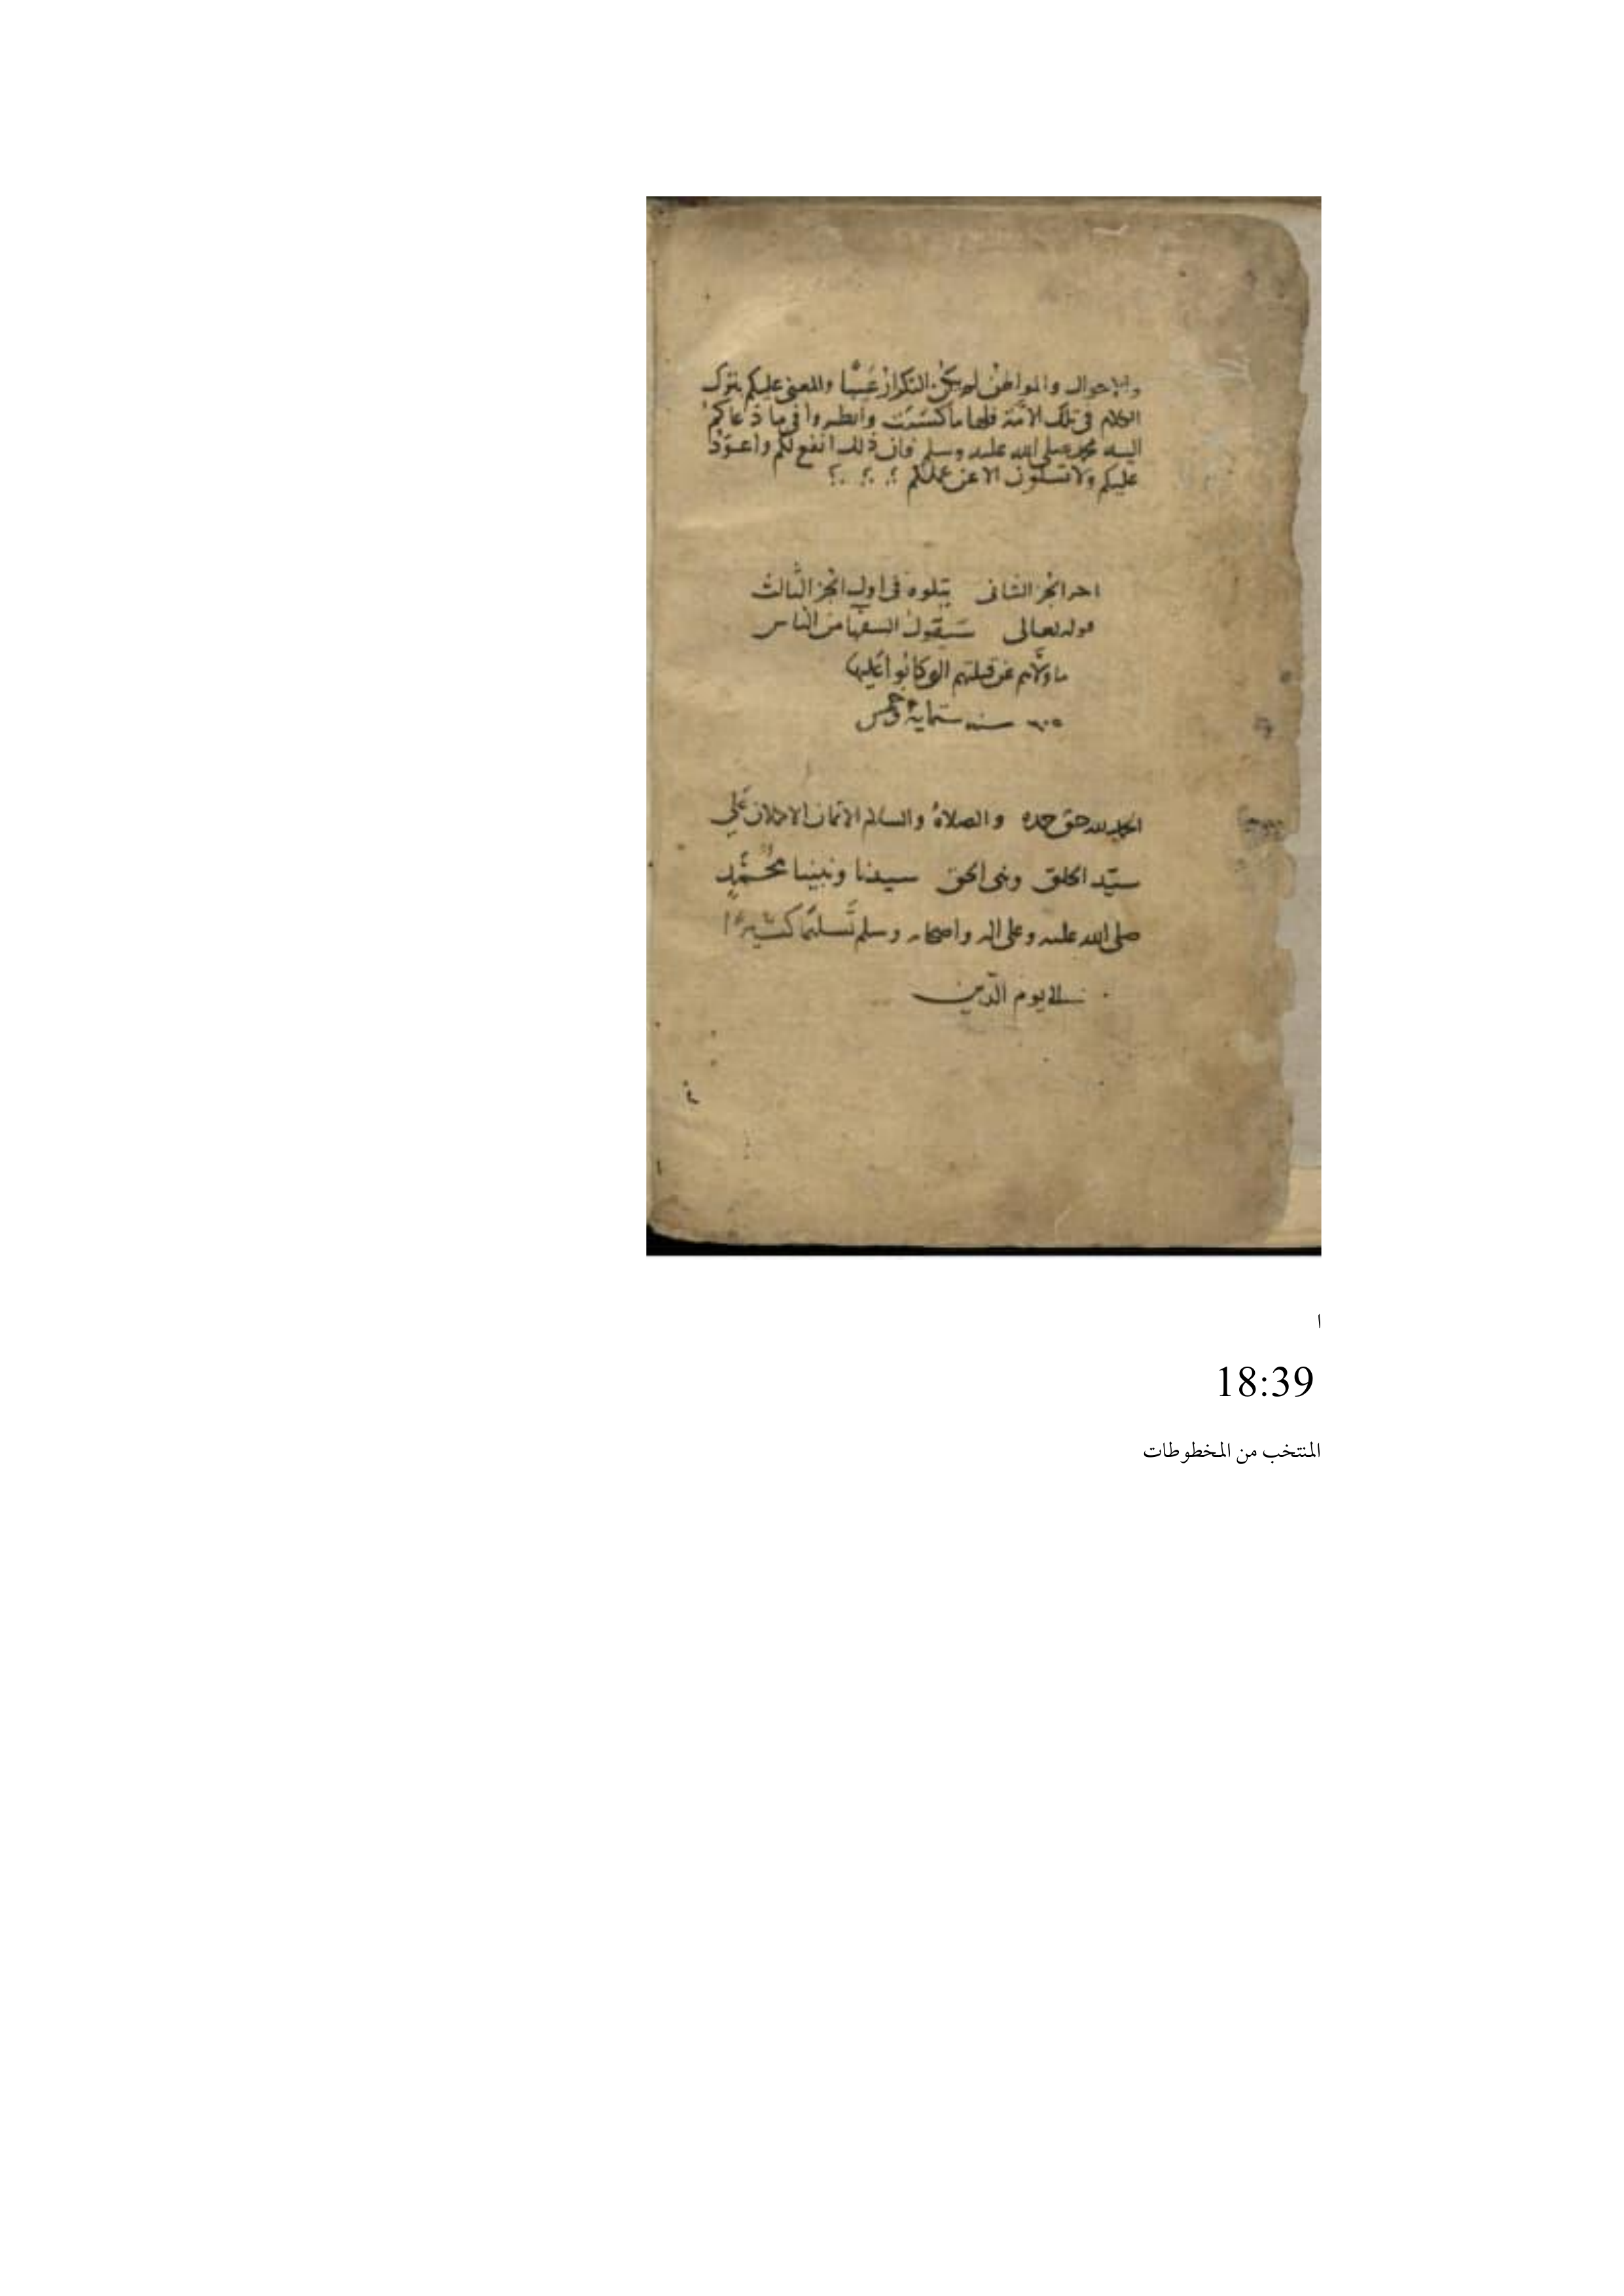 والاحوال والمواطن لم يكن التكرار عبثا والمعنى عليكم بترك
الكلام في تلك الامّة فلها ما كَسَبَت وانظروا في ما دعاكم
اليه محمد صلى الله عليه وسلم فان ذلك انفع لكم واعوَدُ
عليكم ولا تسلون الا عن عملكم
اخر الجز الثاني يتلوه في اول الجز الثالث
قوله تعالى سَيَقولُ السفها من الناس
ما ولّاهم عن قبلتهم التي كانوا عليها
٦٠٥ سنه ستماية وخمس
الحمد لله حق حمده والصلاةُ والسلام الاتمان الاكملان عَلى
سيّد الخلق ونبي الحق سيدنا ونبينا محُمّدٍ
صلى الله عليه وعلى اله واصحابه وسلم تَسليمًا كثيرًا
الى يوم الدّين
ا
18:39
المنتخب من المخطوطات